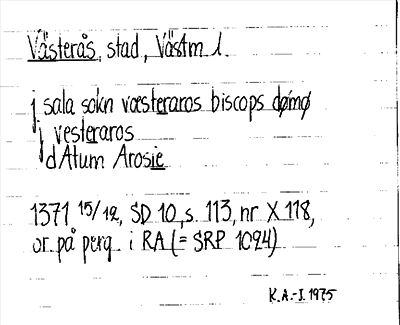 Västerås, stad, Västm l.
j sala sokn væsteraros biscops dømø
j vesteraros
dAtum Arosie
1371 15/12, SD 10, s. 113, nr X 118,
or. på perg. i RA (= SRP 1094)
K.A.-I. 1975